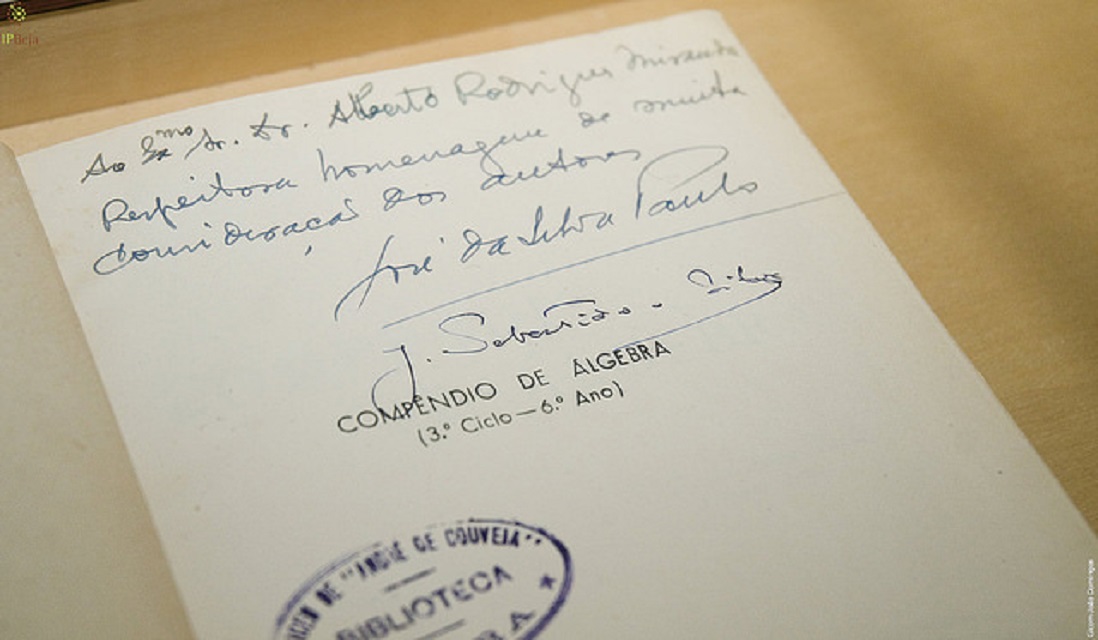 IPBeja
Ao Exmo Sr. Dr. Alberto Rodrigues Miranda
Respeitosa homenagem de muita
consideração dos autores
José da Silva Paulo
J. Sebastião e Silva
COMPÊNDIO DE ÁLGEBRA
(3.º Ciclo—6.º Ano)
LICEU DE "ANDRÉ DE GOUVEIA"
BIBLIOTECA